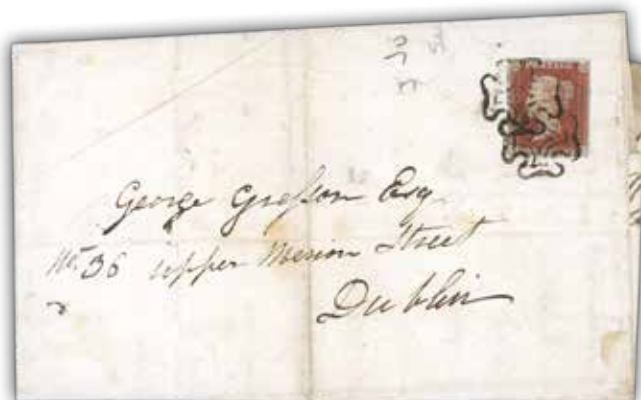 George Grefson Esq
No. 36 upper Merion Street
Dublin